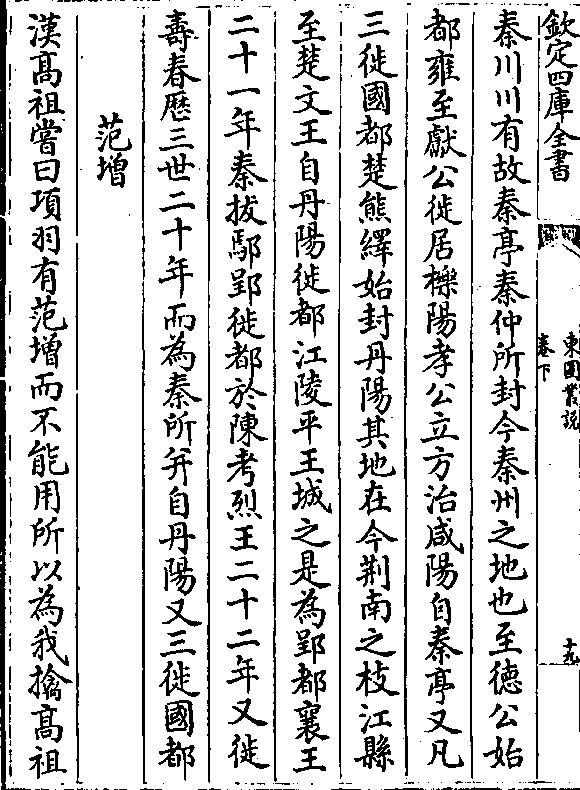 欽定四庫全書
東園叢説
卷下
十九
秦川川有故秦亭秦仲所封今秦州之地也至德公始
都雍至獻公徙居櫟陽孝公立方治咸陽自秦亭又凡
三徙國都楚熊繹始封丹陽其地在今荆南之枝江縣
至楚文王自丹陽徙都江陵平王城之是為郢都襄王
二十一年秦拔鄢郢徙都於陳考烈王二十二年又徙
壽春歴三世二十年而為秦所并自丹陽又三徙國都
范增
漢髙祖嘗曰項羽有范增而不能用所以為我擒髙祖